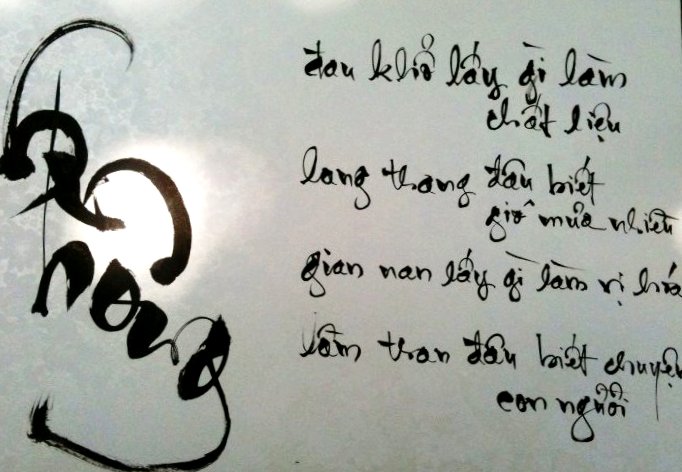 Phong
đau khổ lấy gì làm
chất liệu
lang thang đâu biết
gió mưa nhiều
gian nan lấy gì làm vị
lầm than đâu biết chuyện
con người